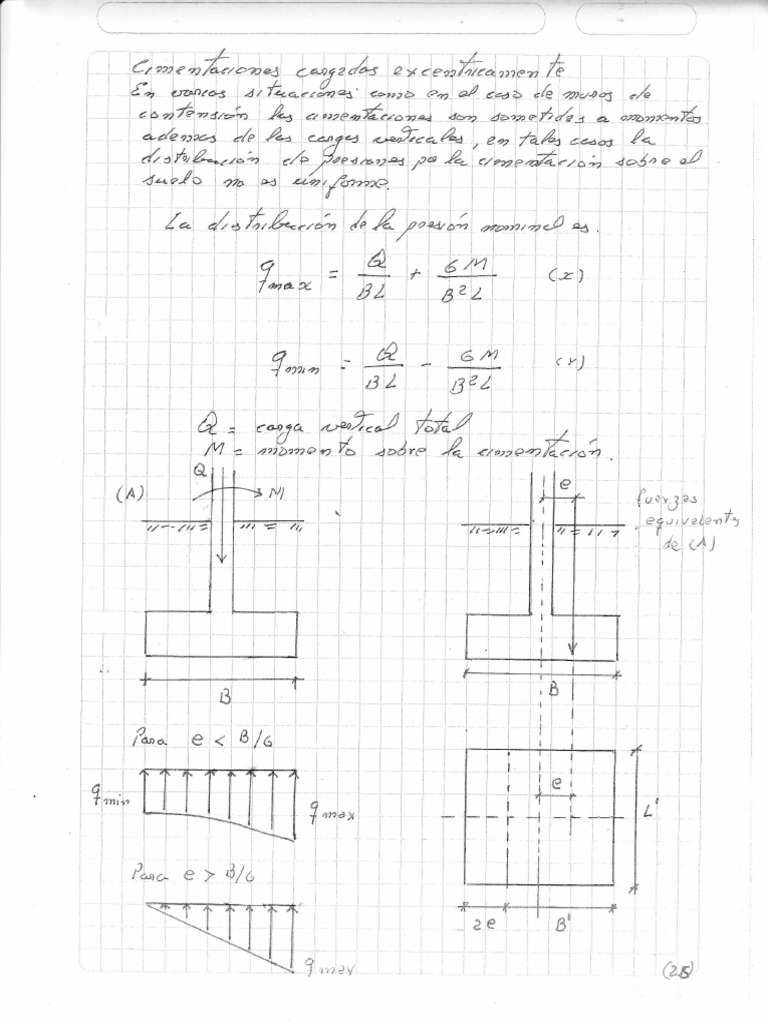 Cimentaciones cargadas excentricamente
En varias situaciones como en el caso de muros de
contensión las cimentaciones son sometidas a momentos
ademas de las cargas verticales, en tales casos la
distribución de presiones po la cimentación sobre el
suelo no es uniforme.
La distribución de la presión nominal es.
q max = Q/BL + 6M/B²L (x)
q min = Q/BL - 6M/B²L
Q = carga vertical total
M = momento sobre la cimentación.
(A) Q M
e
fuerzas
equivalentes
de (A)
B
B
Para e < B/6
q min
q max
e
L'
Para e > B/6
2e B'
q max